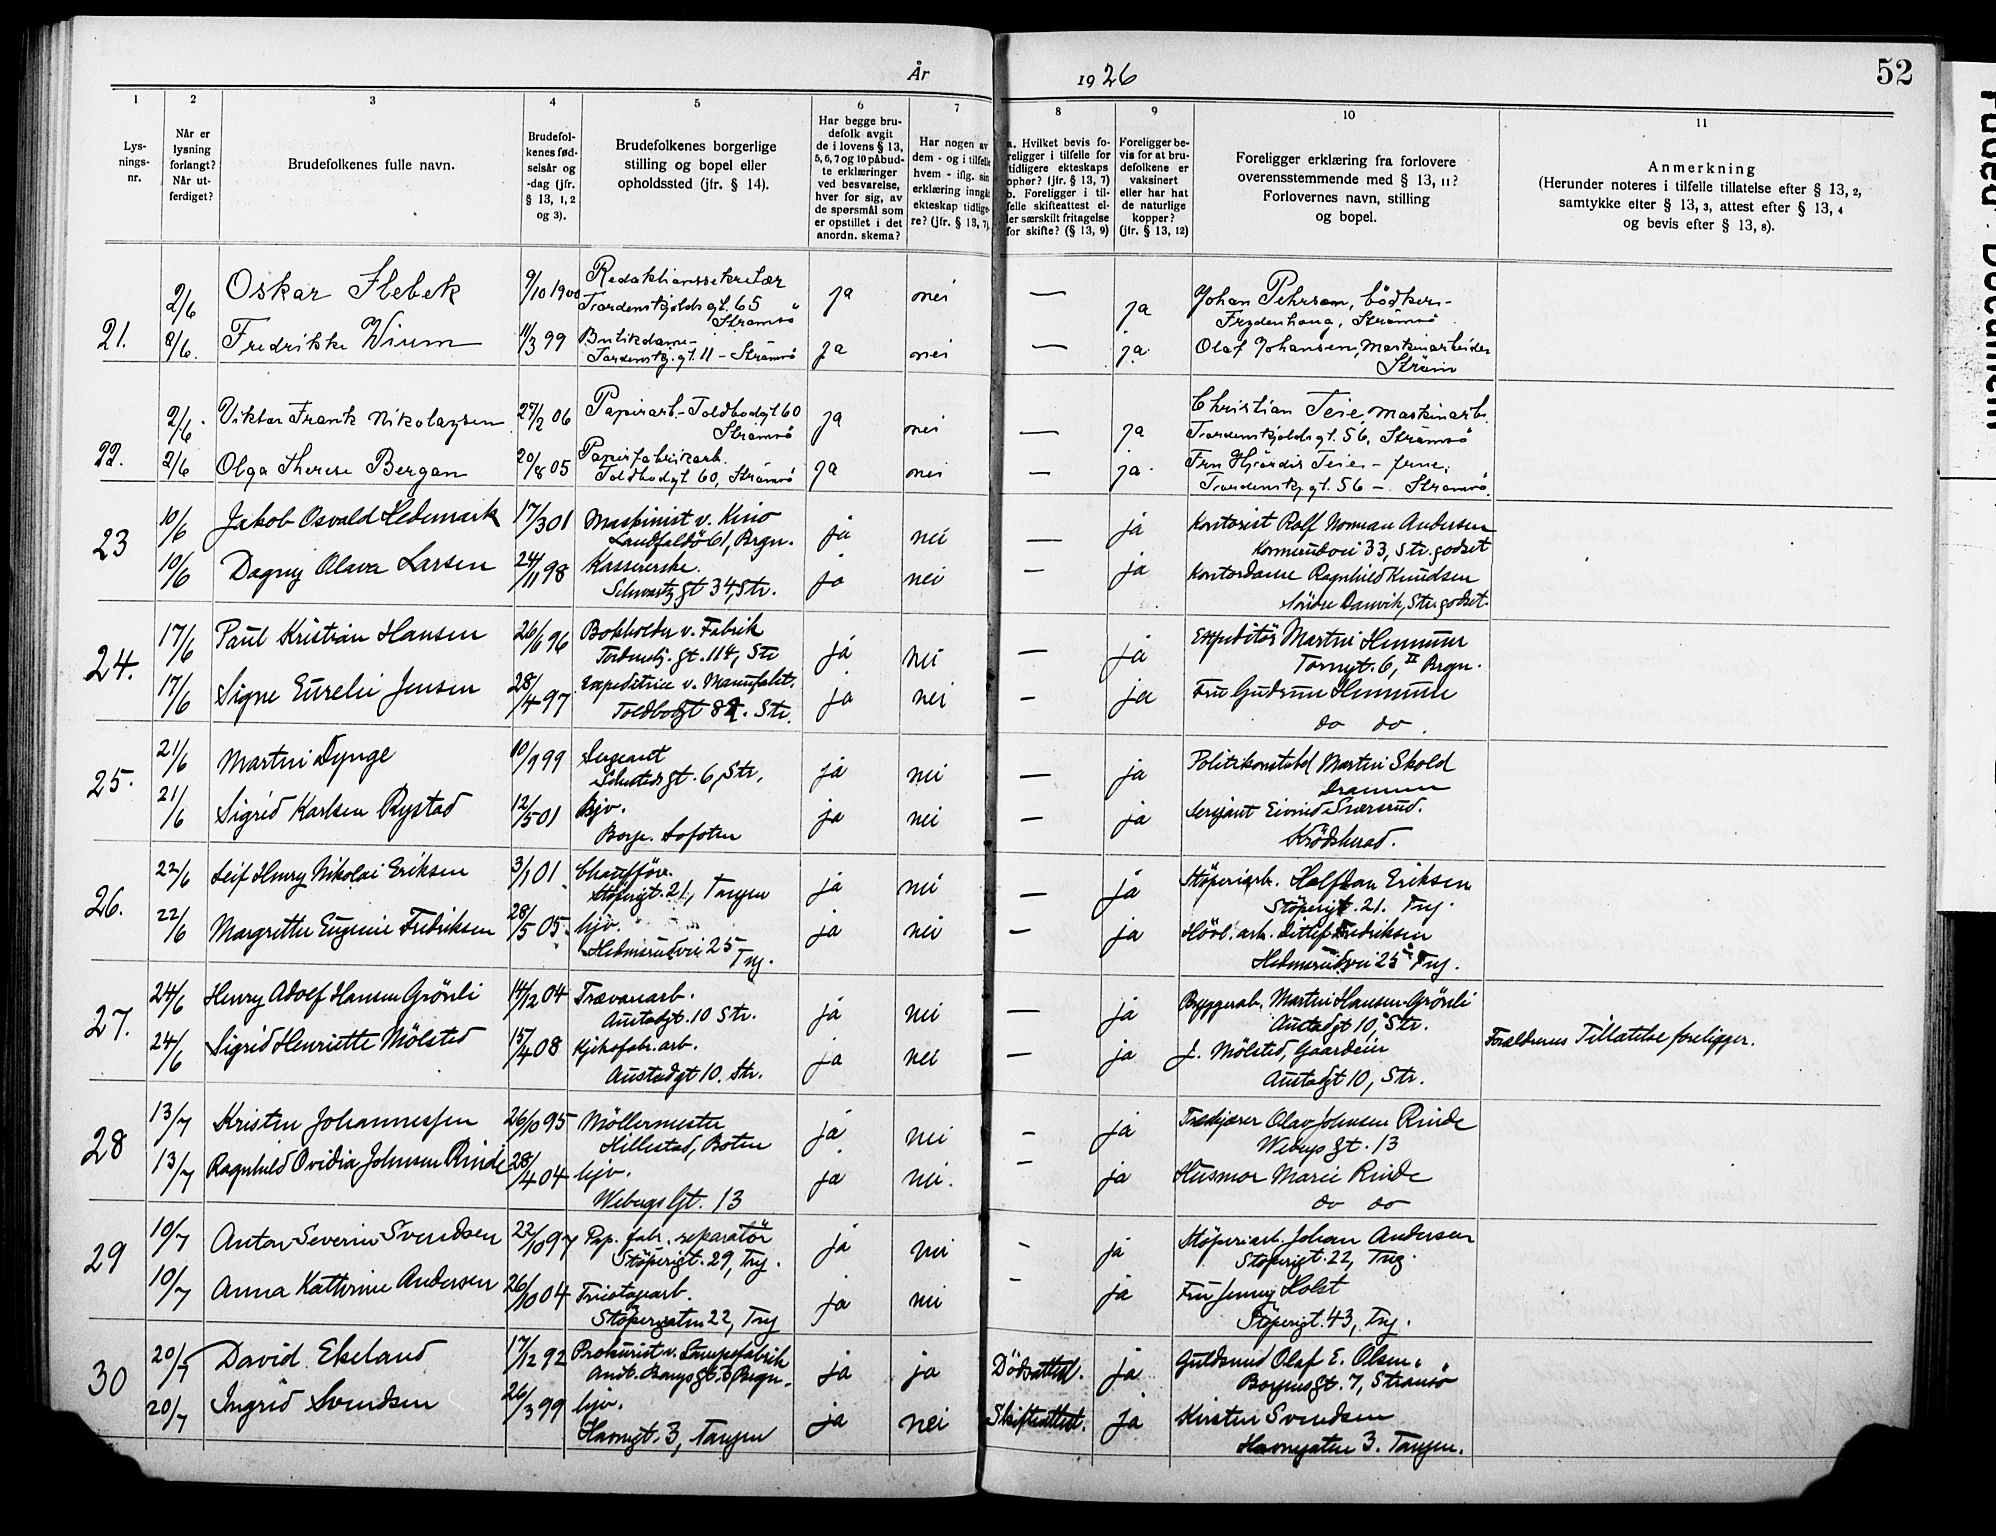 År 1926
52
1 2 3 4 5 6 7 8 9 10 11
Lys-
nings-
nr.
Når er
lysning
forlangt?
Når ut-
ferdiget?
Brudefolkenes fulle navn.
Brudefol-
kenes fød-
selsår og
-dag (jfr.
§ 13, 1, 2
og 3).
Brudefolkenes borgerlige
stilling og bopel eller
opholdssted (jfr. § 14).
Har begge bru-
defolk avgit
de i lovens § 13,
5, 6, 7 og 10 påbud-
te erklæringer
ved besvarelse,
hver for sig, av
de spørsmål som
er opstillet i det
anordn. skema?
Har nogen av
dem - og i tilfelle
hvem - iflg. sin
erklæring inngåt
ekteskap tidlige-
re? (jfr. § 13, 7).
a. Hvilket bevis fo-
religger i tilfelle for
tidligere ekteskaps
ophør? (jfr. § 13, 7)
b. Foreligger i til-
felle skifteattest el-
ler særskilt fritagelse
for skifte? (§ 13, 9)
Foreligger be-
vis for at bru-
defolkene er
vaksinert
eller har hat
de naturlige
kopper?
(jfr. § 13, 12)
Foreligger erklæring fra forlovere
overensstemmende med § 13, 11?
Forlovernes navn, stilling
og bopel.
Anmerkning
(Herunder noteres i tilfelle tillatelse efter § 13, 2,
samtykke efter § 13, 3, attest efter § 13, 4
og bevis efter § 13, 8).
21. 2/6 Oskar Flebek 9/10 1900 Redaktionssekretær ja nei — ja Johan Pehrson, bødker-
Tordenskjolds gt. 65 Strømsø Frydenhaug, Strømsø
8/6. Fredrikke Wium 11/3 99 Butikdame- ja nei — ja Olaf Johansen, Maskinarbeider
Tordenskj. gt. 11 - Strømsø Strøm
22. 2/6. Viktor Frank Nikolaysen 27/2 06 Papirarb. - Toldbodgt 60 ja nei — ja Christian Teie, maskinarb.
Strømsø Tordenskjolds gt. 56, Strømsø
2/6 Olga Therese Bergan 20/8 05 Papirfabrikarb. ja nei — ja. Fru Hjørdis Teie -
Toldbodgt 60, Strømsø Tordenskj. gt. 56 - Strømsø.
23 10/6 Jakob Osvald Hedemark 17/3 01 Maskinist v. Kino ja nei — ja Kontorist Rolf Norman Andersen
Landfaldö 61, Brgn. 33, Str. godset
10/6 Dagny Olava Larsen 24/11 98 Kassererske. ja nei — ja Kontordame Ragnhild Knudsen
Schwartz gt 34, Str. Søndre Danvik, Str. godset.
24. 17/6 Paul Kristian Hansen 26/6 96 Bokholder v. Fabrik ja nei — ja Expeditör Martin Hemmum
Tordenskj. gt. 114, Str Tornegt. 6, II Brgn.
17/6 Signe Eurelie Jensen 28/4 97 Expeditrice v. Manufakt. ja nei — ja Fru Gudrun Hemmum
Toldbodgt 82. Str. do do.
25. 21/6 Martin Dynge 10/9 99 Sergeant ja nei — ja Politikonstabel Martin Skold
gt. 6, Str. Drammen
21/6 Sigrid Karlsen Rystad 12/5 01 Hjv. ja nei — ja Sersjant Eivind Snersrud.
Borge. Lofoten Krödsherad.
26. 22/6 Leif Henry Nikolai Eriksen 3/1 01 Chaufför. ja nei — ja Støperiarb. Halfdan Eriksen
Støperigt. 21, Tangen Støperigt. 21. Tng.
22/6 Margrethe Eugenie Fredriksen 28/5 05. hjv. ja nei — ja Hövl. arb. Ditlef Fredriksen
Hedmsrudvei 25 Tng. Hedmsrudvei 25 Tng.
27. 24/6 Henry Adolf Hansen Grönli 14/12 04 Trævarearb. ja nei — ja Bryggerarb. Martin Hansen Grönli
Austadgt. 10 Str. Austadgt 10, Str.
24/6 Sigrid Henriette Mölsted 15/4 08 Kjeksfabr. arb. ja nei — ja J. Mölsted, Gaardeier Forældrenes Tillatelse foreligger.
Austadgt 10. Str. Austadgt 10, Str.
28 13/7 Kristen Johannessen 26/10 95 Möllermester ja nei — ja Trækjører Olav Johnsen Rinde
Hillestad, Botne Webergs gt. 13
13/7 Ragnhild Ovidia Johnsen Rinde 28/4 04 hjv. ja nei. — ja Husmor Marie Rinde
Webergs Gt. 13 do do
29 10/7 Anton Severin Svendsen 22/10 97 Pap. fabr. separatör ja nei — ja Støperiarb. Johan Andersen
Støperigt. 29, Tng. Støperigt. 22, Tng.
10/7 Anna Kathrine Andersen 26/10 04 Tricotagearb. ja nei — ja Fru Jenny Holst
Støperigaten 22, Tng Støperigt. 43, Tng.
30 20/7 David Ekeland 17/12 92 Prokurist v. Lampefabrik ja ja Dödsattest. ja Guldsmed Olaf E. Olsen.
Brgn. Borgensgt. 7, Strømsö
20/7 Ingrid Svendsen 26/3 99 hjv. ja nei Skifteattest. ja Kirsten Svendsen
Havnegt. 3, Tangen Havnegaten 3. Tangen.